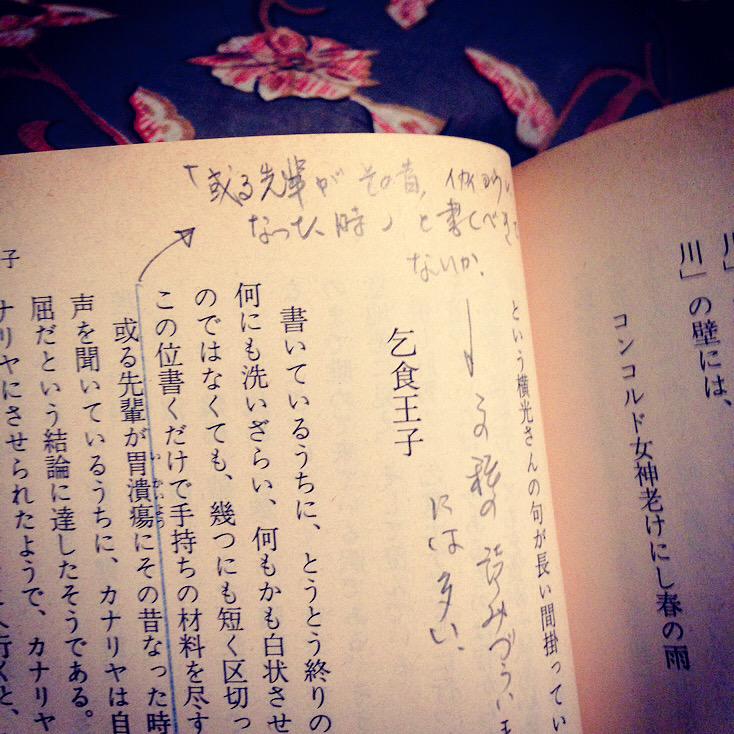 川」の壁には、
コンコルド女神老けにし春の雨
という横光さんの句が長い間掛ってい
「或る先輩が その昔、
なった、時」と書くべき
ないか。
この種の読みづらい
には多い、
乞食王子
書いているうちに、とうとう終りの
何にも洗いざらい、何もかも白状させ
のではなくても、幾つにも短く区切っ
この位書くだけで手持ちの材料を尽す
或る先輩が胃潰瘍にその昔なった時
声を聞いているうちに、カナリヤは自
屈だという結論に達したそうである。
ナリヤにさせられたようで、カナリヤ
子